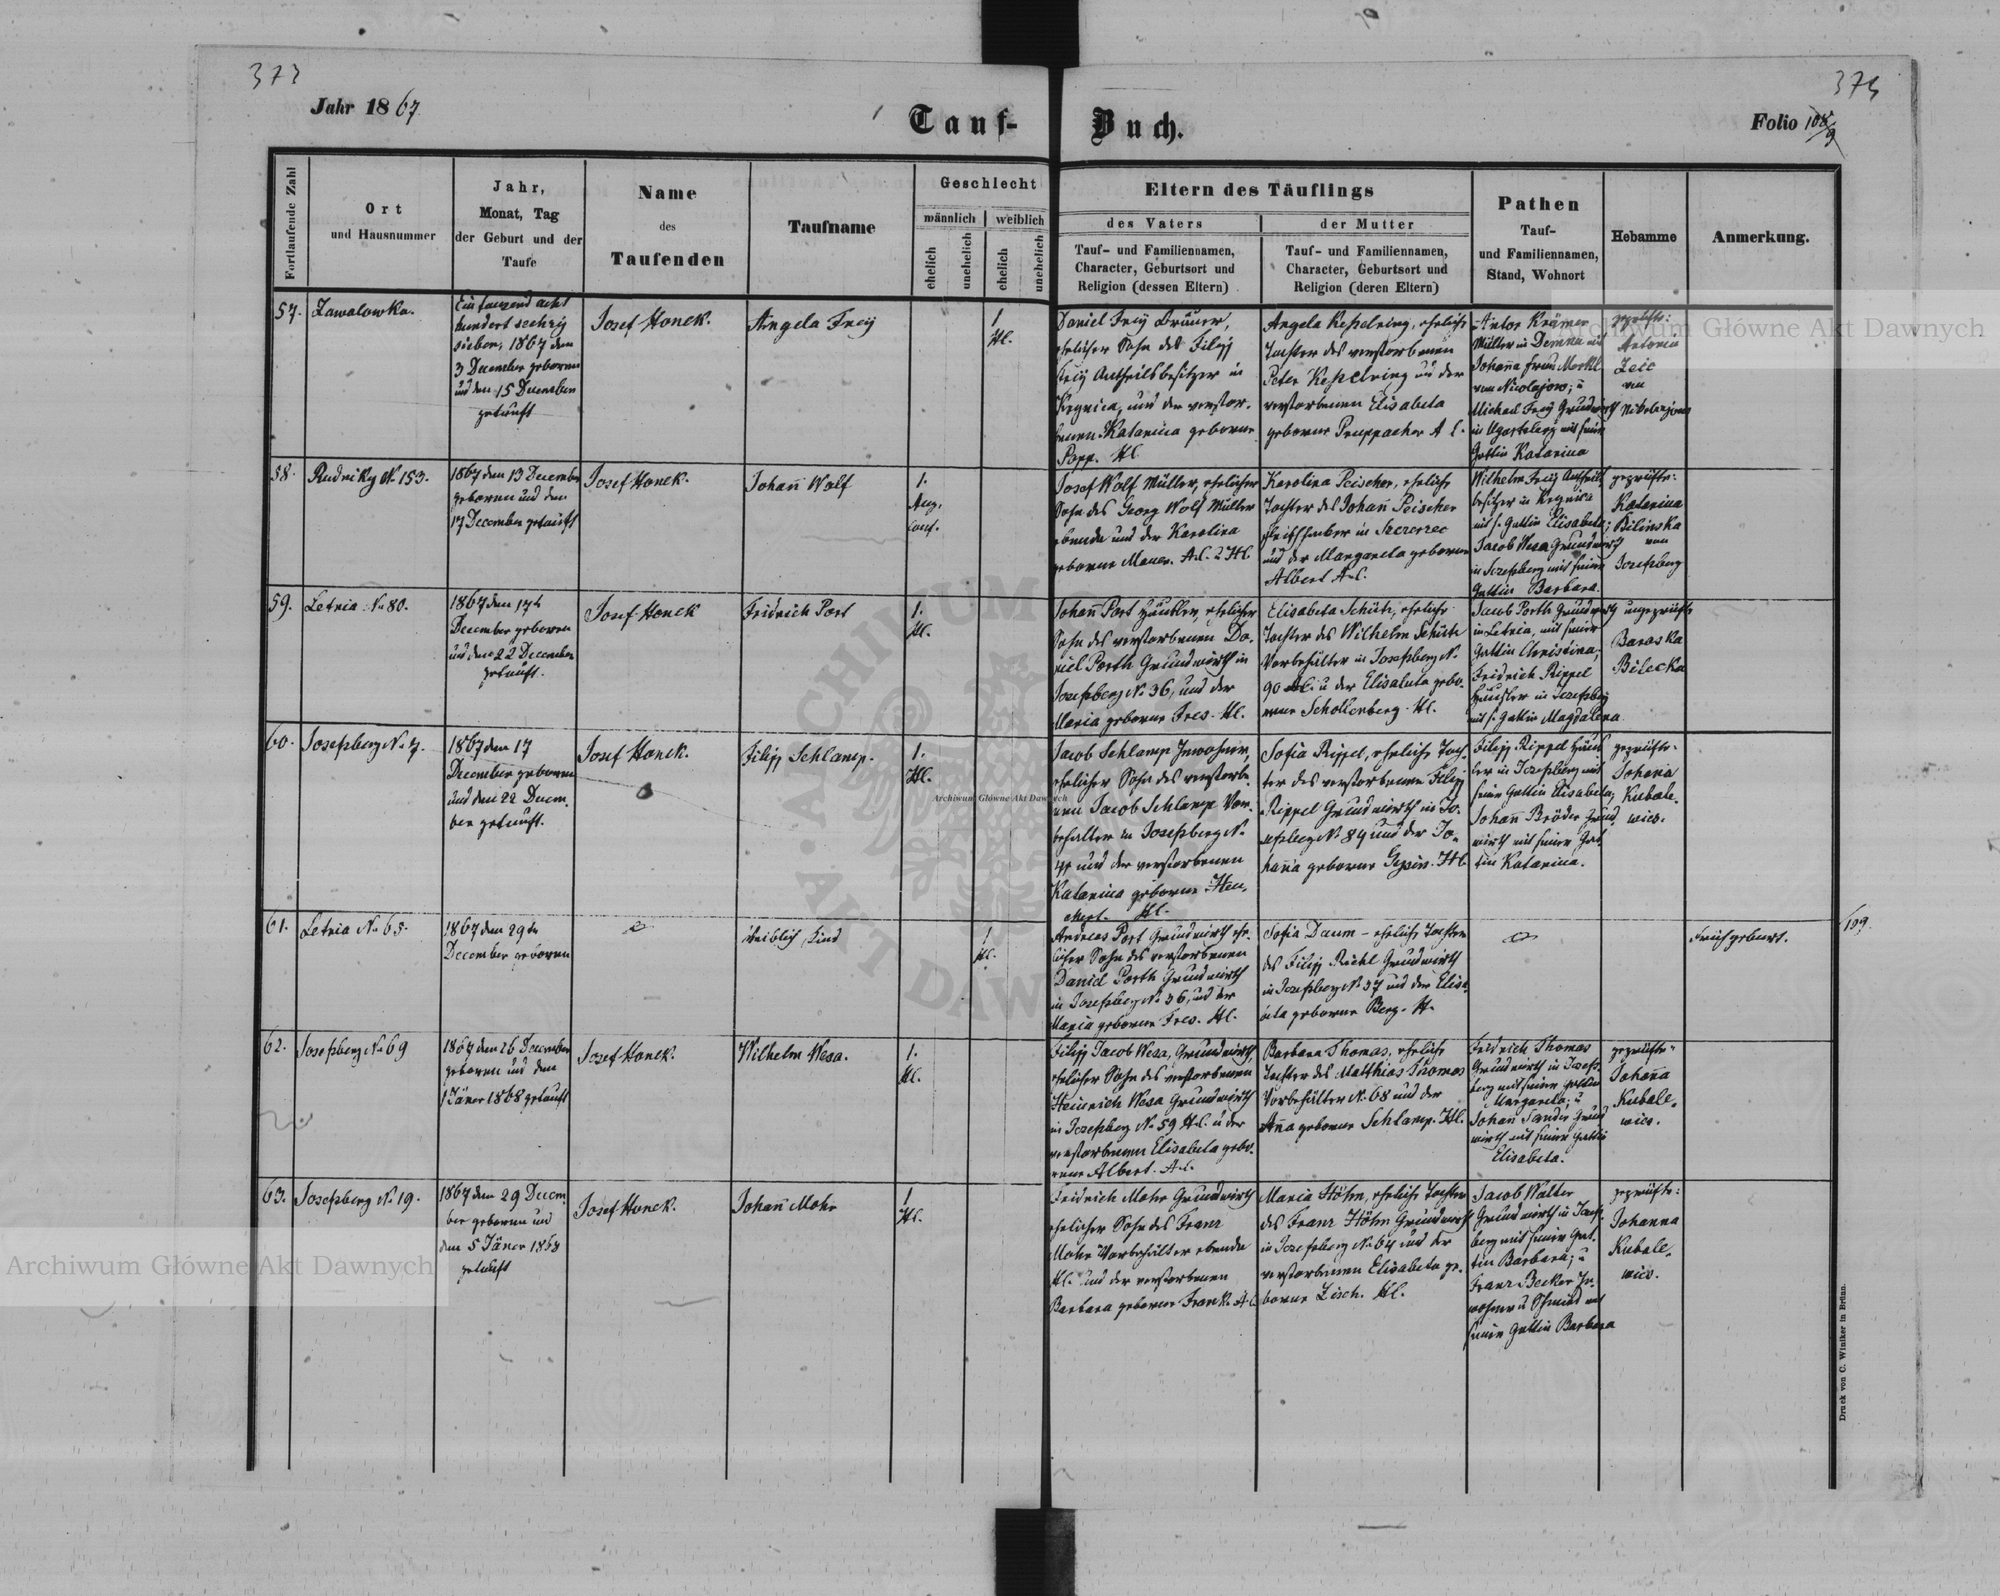 373
374
Jahr 1867
Tauf-
Buch.
Folio 108/9
Fortlaufende Zahl
Ort
und Hausnummer
Jahr,
Monat, Tag
der Geburt und der
Taufe
Name
des
Taufenden
Taufname
Geschlecht
männlich
weiblich
ehelich
unehelich
ehelich
unehelich
Eltern des Täuflings
des Vaters
der Mutter
Tauf- und Familiennamen,
Character, Geburtsort und
Religion (dessen Eltern)
Tauf- und Familiennamen,
Character, Geburtsort und
Religion (deren Eltern)
Pathen
Tauf-
und Familiennamen,
Stand, Wohnort
Hebamme
Anmerkung.
57.
Zawalowka.
Ein tausend acht
hundert sechzig
sieben, 1867 den
3 December geboren
und den 15 December
getauft
Josef Honek.
Angela Frey
1
Hl.
Daniel Frey
ehelicher Sohn des Filipp
Frey Antheilsbesitzer in
Kregnica, und der verstor-
benen Katarina geborne
Popp. Hl.
Angela Keßelring, eheliche
Tochter des verstorbenen
Peter Keßelring und der
verstorbenen Elisabeta
geborne Pruppacher A C.
Anton Krämer
Müller in Demnia und
Johanna Frau Merkl
von Nicolajow; u
Michael Frey Grundwirth
in Ugartsberg mit seiner
Gattin Katarina
geprüfte:
Antonia
Zeic
von
Nikolajow
58.
Rudniky No 153.
1867 den 13 December
geboren und den
17 December getauft
Josef Honek.
Johann Wolf
1.
Aug.
Conf.
Josef Wolf Müller, ehelicher
Sohn des Georg Wolf Müller
ebenda und der Karolina
geborne Mauer. A.C. 2 Hl.
Karolina Peischer, eheliche
Tochter des Johann Peischer
in Szczerzec
und der Margareta geborne
Albert A.C.
Wilhelm Frey Antheils
besitzer in Kregnica
mit s. Gattin Elisabeta;
Jacob Wesa Grundwirth
in Josefsberg mit seiner
Gattin Barbara.
geprüfte:
Katarina
Bilinska
von
Josefsberg
59.
Letnia No 80.
1867 den 17ten
December geboren
und den 22 December
getauft.
Josef Honek
Fridrich Port
1.
Hl.
Johann Port Häusler, ehelicher
Sohn des verstorbenen Da-
niel Porth Grundwirth in
Josefsberg No 36, und der
Maria geborne Fres. Hl.
Elisabeta Schütz, eheliche
Tochter des Wilhelm Schütz
Vorbehälter in Josefsberg No
90 Hl. u der Elisabeta gebo-
rene Schollenberg. Hl.
Jacob Porth Grundwirth
in Letnia, mit seiner
Gattin Christina;
Fridrich Rippel
Häusler in Josefsberg
mit s. Gattin Magdalena
ungeprüfte
Baraska
Bilecka
60.
Josefsberg No 7.
1867 den 17
December geboren
und den 22 Decem-
ber getauft.
Josef Honek.
Filipp Schlamp.
1.
Hl.
Jacob Schlamp Inwohner,
ehelicher Sohn des verstorbe-
nen Jacob Schlamp Vor-
behalter in Josefsberg No
und der verstorbenen
Katarina geborne Hl.
Sofia Rippel, eheliche Toch-
ter des verstorbenen Filipp
Rippel Grundwirth in Jo-
sefsberg No 84 und der Jo-
hanna geborne Hl.
Filipp Rippel Häus
ler in Josefsberg mit
seiner Gattin Elisabeta;
Johann Bröder Grund
wirth mit seiner Gat
tin Katarina.
geprüfte:
Johana
Kubale-
wics.
61.
Letnia No 65.
1867 den 29ten
December geboren
weiblich Kind
1
Hl.
Andreas Port Grundwirth ehe-
licher Sohn des verstorbenen
Daniel Porth Grundwirth
in Josefsberg No 36, und der
Maria geborne Fres. Hl.
Sofia Daum - eheliche Tochter
des Filipp Grundwirth
in Josefsberg No 37 und der Elisa-
beta geborne Berg. H.
Frühgeburt.
109
62.
Josefsberg No 69
1867 den 26 December
geboren und den
1 Jäner 1868 getauft
Josef Honek.
Wilhelm Wesa.
1.
Hl.
Filipp Jacob Wesa, Grundwirth,
ehelicher Sohn des verstorbenen
Heinrich Wesa Grundwirth
in Josefsberg No 59 Hl. u der
verstorbenen Elisabeta gebo-
rene Albert. A.C.
Barbara Thomas, eheliche
Tochter des Matthias Thomas
Vorbehälter No 68 und der
Anna geborne Schlamp. Hl.
Fridrich Thomas
Grundwirth in Josefs-
berg mit seiner Gattin
Margareta; u
Johann Sander Grund
wirth mit seiner Gattin
Elisabeta.
geprüfte:
Johanna
Kubale-
wics.
63.
Josefsberg No 19.
1867 den 29 Decem
ber geboren und
den 5 Jäner 1868
getauft
Josef Honek.
Johann Mohr
1
Hl.
Fridrich Mohr Grundwirth
ehelicher Sohn des Franz
Mohr Vorbehälter ebenda
Hl. und der verstorbenen
Barbara geborne Frank. A.C.
Maria Höhn, eheliche Tochter
des Franz Höhn Grundwirth
in Josefsberg No 64 und der
verstorbenen Elisabeta ge-
borne Zisch. Hl.
Jacob Walter
Grundwirth in Josefs-
berg mit seiner Gat-
tin Barbara; u
Franz Becker In-
wohner u Schmied mit
seiner Gattin Barbara
geprüfte:
Johanna
Kubale-
wics.
Druck von C. Winiker in Brünn.
Archiwum Główne Akt Dawnych
Archiwum Główne Akt Dawnych
Archiwum Główne Akt Dawnych
ARCHIWUM
AKT DAW